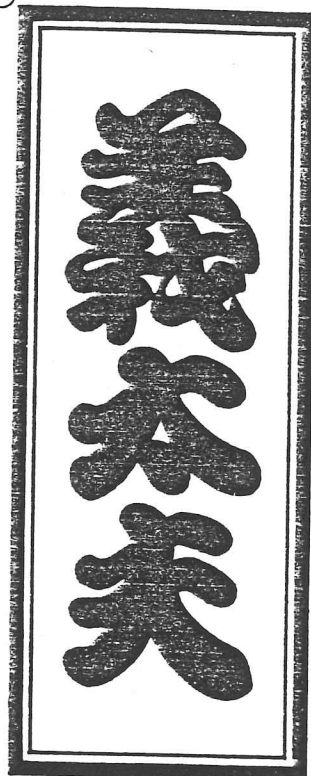 義太夫